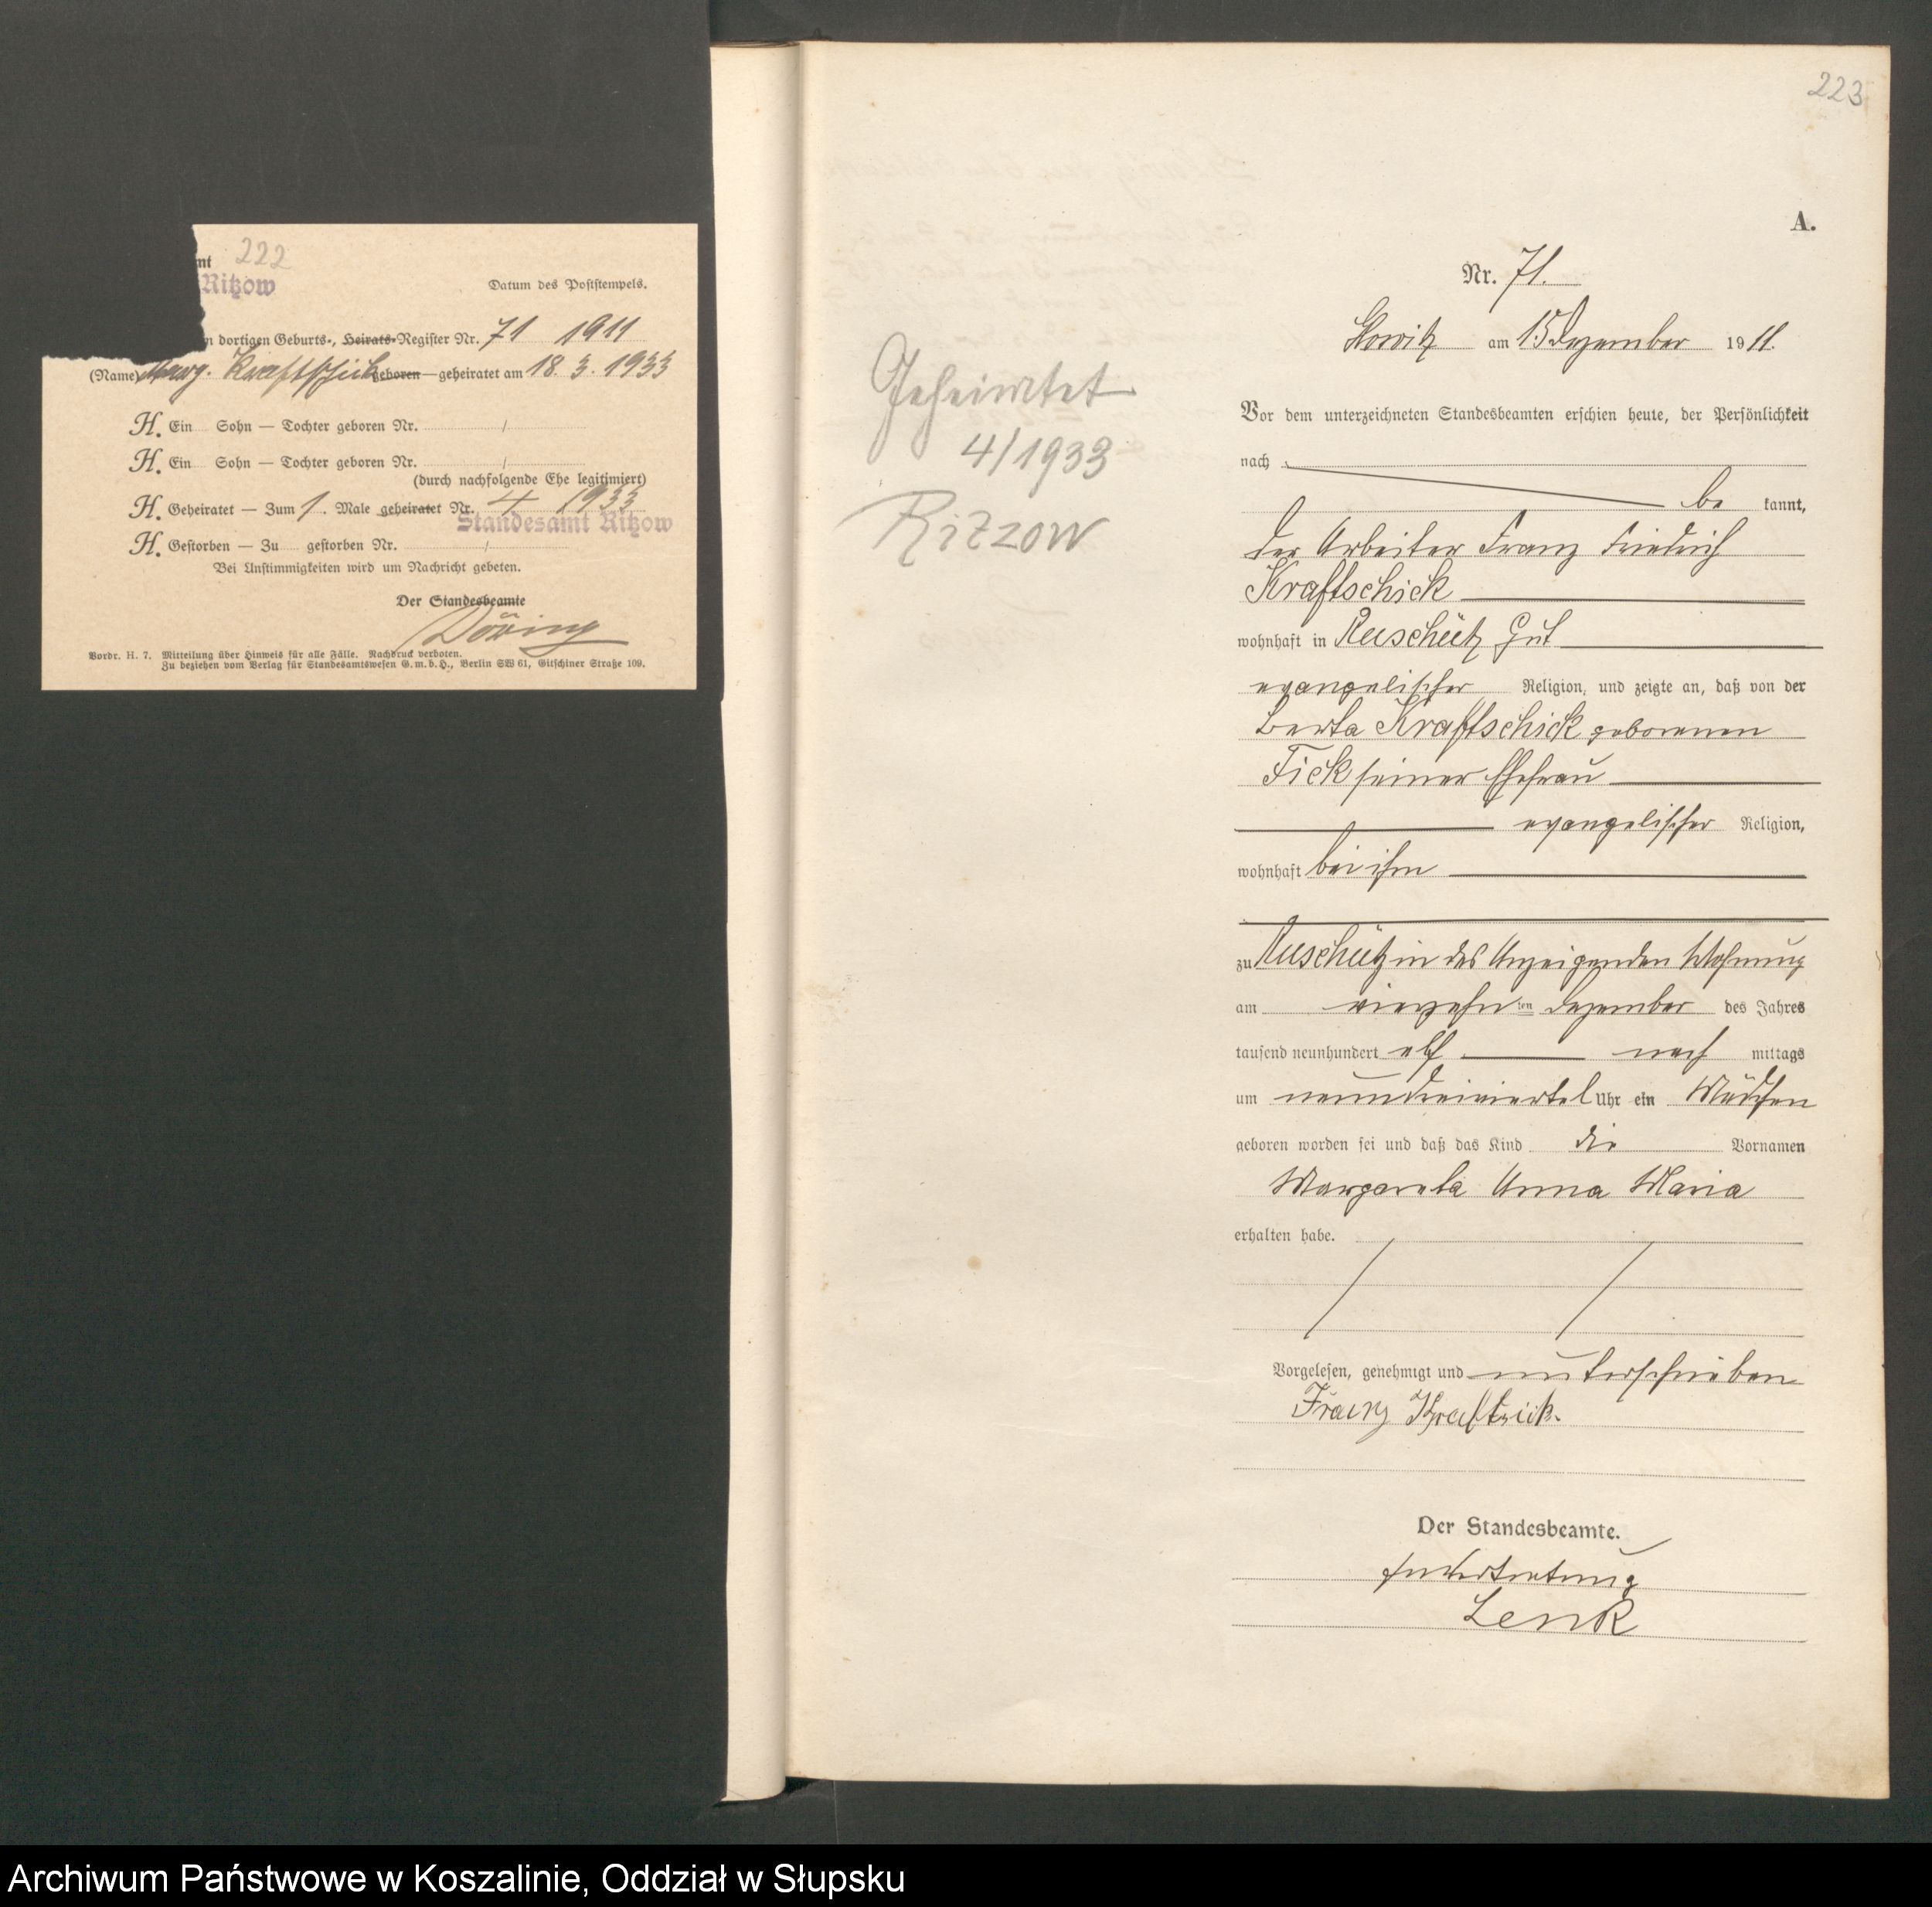 222
mt
Ritzow
Datum des Poststempels.
n dortigen Geburts-, Heirats-Register Nr. 71 1911
(Name) Marg. Kraftschick geboren — geheiratet am 18. 3. 1933
H. Ein Sohn — Tochter geboren Nr. /
H. Ein Sohn — Tochter geboren Nr. /
(durch nachfolgende Ehe legitimiert)
H. Geheiratet — Zum 1. Male geheiratet Nr. 4 1933
Standesamt Ritzow
H. Gestorben — Zu gestorben Nr. /
Bei Unstimmigkeiten wird um Nachricht gebeten.
Der Standesbeamte
Döring
Vordr. H. 7. Mitteilung über Hinweis für alle Fälle. Nachdruck verboten.
Zu beziehen vom Verlag für Standesamtswesen G.m.b.H., Berlin SW 61, Gitschiner Straße 109.
223
A.
Nr. 71.
am 15 Dezember 1911.
Geheiratet
4/1933
Rizzow
Vor dem unterzeichneten Standesbeamten erschien heute, der Persönlichkeit
nach
be kannt,
der Arbeiter Franz Friedrich
Kraftschick
wohnhaft in Ruschütz Gut
evangelischer Religion, und zeigte an, daß von der
Berta Kraftschick geborenen
Fick seiner Ehefrau
evangelischer Religion,
wohnhaft bei ihm
zu Ruschütz in des Anzeigenden Wohnung
am vierzehn ten Dezember des Jahres
tausend neunhundert elf nach mittags
um neundreiviertel Uhr ein Mädchen
geboren worden sei und daß das Kind die Vornamen
Margareta Anna Maria
erhalten habe.
Vorgelesen, genehmigt und unterschrieben
Franz Kraftzick.
Der Standesbeamte.
In Vertretung
Lenk
Archiwum Państwowe w Koszalinie, Oddział w Słupsku